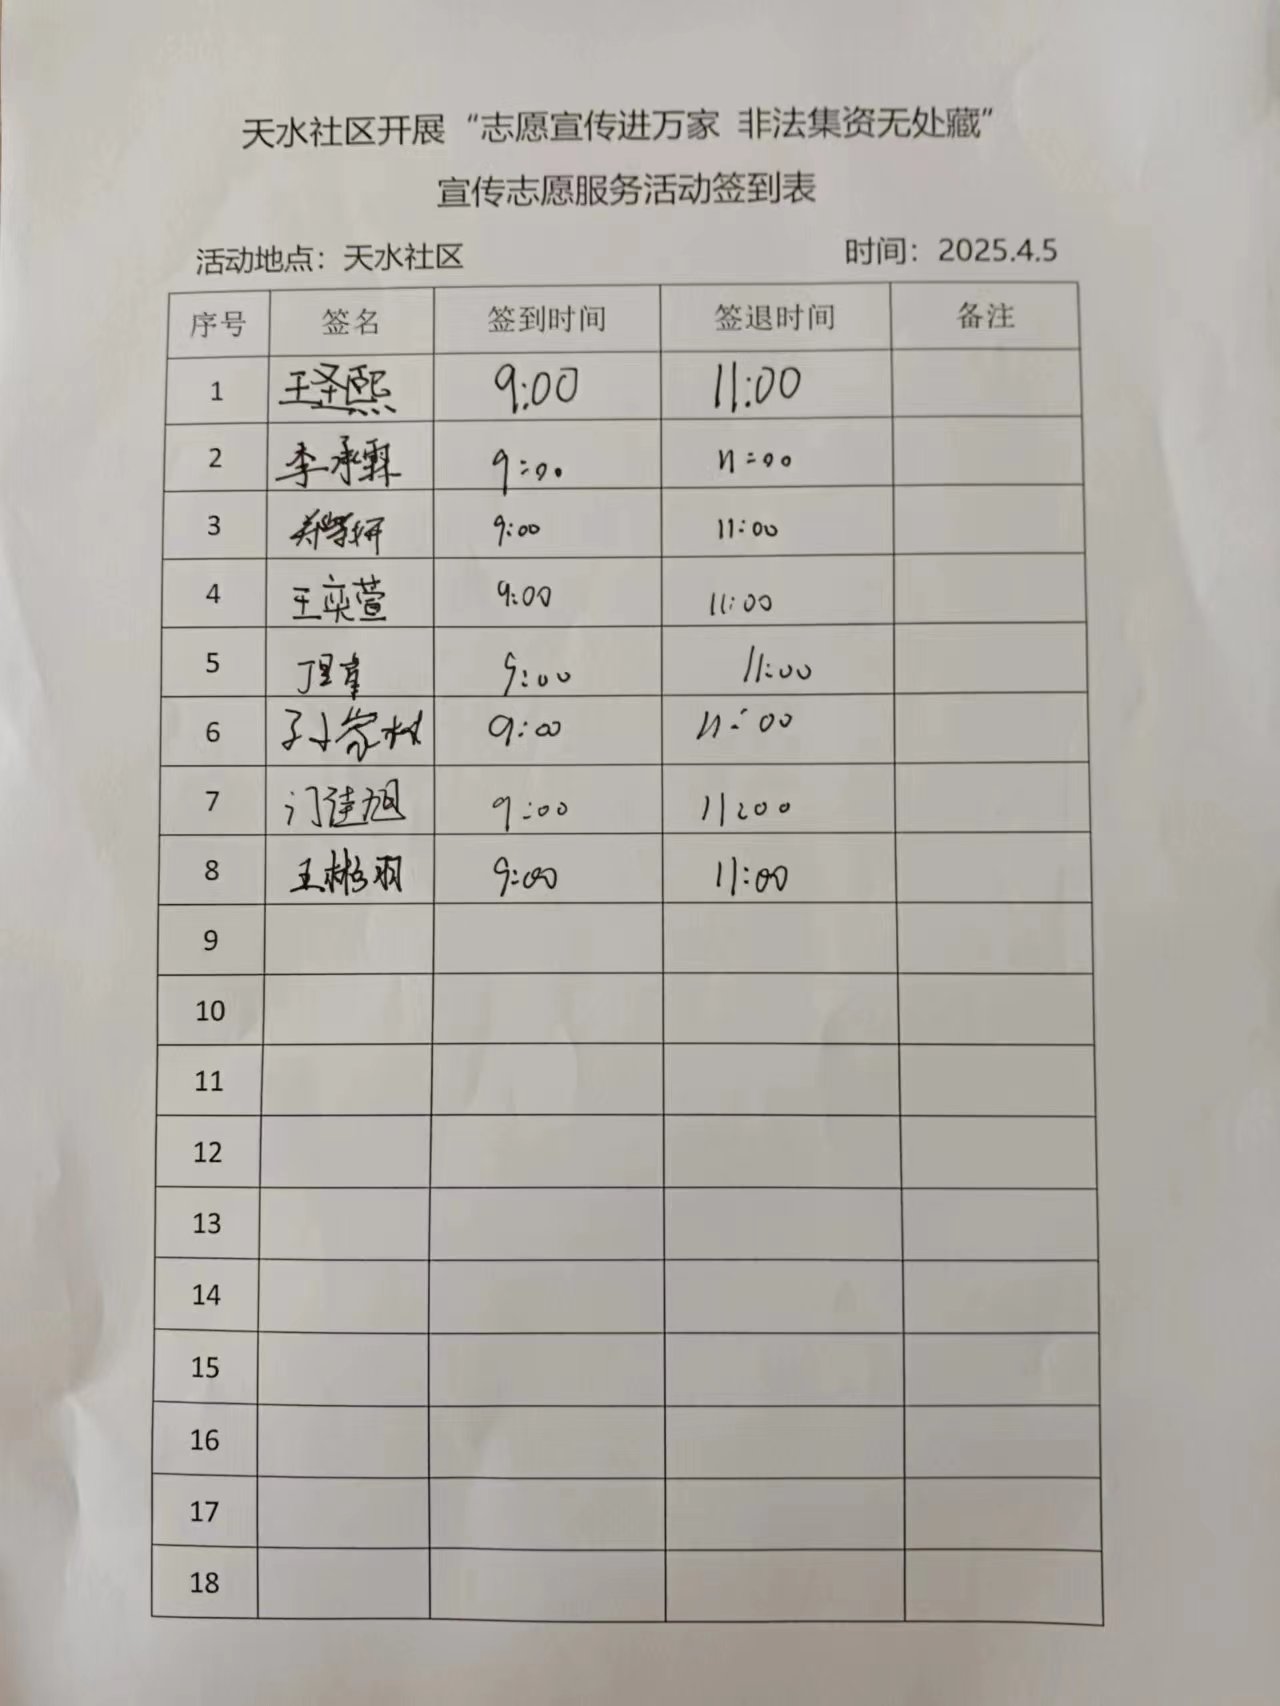 天水社区开展“志愿宣传进万家 非法集资无处藏”
宣传志愿服务活动签到表
活动地点：天水社区 时间：2025.4.5
序号 签名 签到时间 签退时间 备注
1 王圣熙 9:00 11:00
2 李承霖 9:00 11:00
3 9:00 11:00
4 王奕萱 9:00 11:00
5 9:00 11:00
6 孙家树 9:00 11:00
7 9:00 11:00
8 王彬羽 9:00 11:00
9
10
11
12
13
14
15
16
17
18